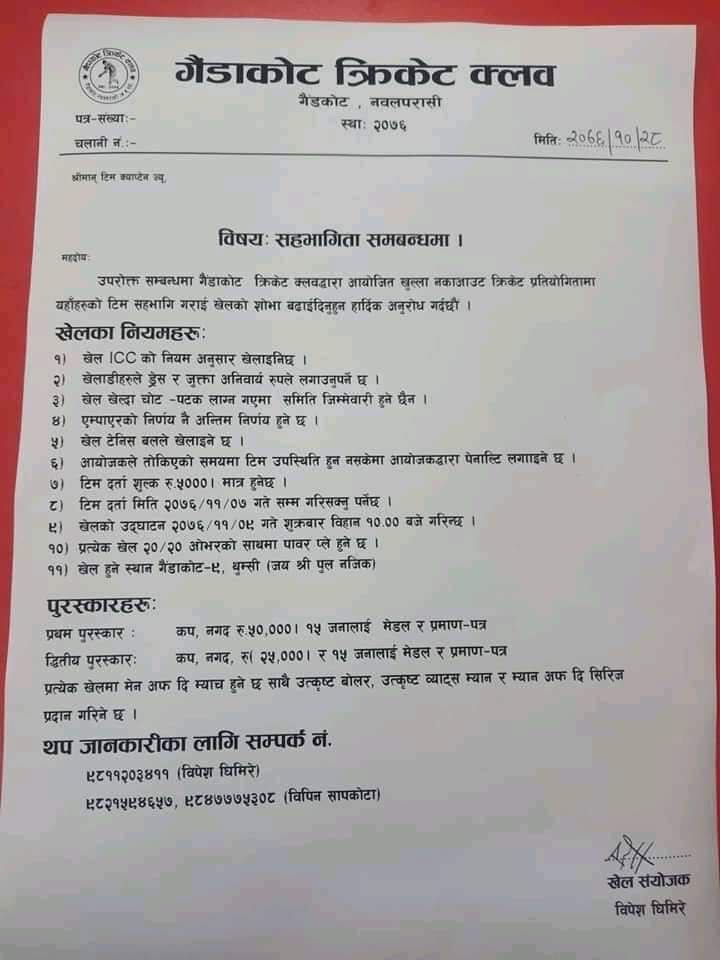 गैंडाकोट क्रिकेट क्लव
गैंडकोट , नवलपरासी
पत्र-संख्या:-
स्था: २०७६
चलानी नं.:-
मिति: २०७६/१०/२८
श्रीमान् टिम क्याप्टेन ज्यू,
विषय: सहभागिता समबन्धमा ।
महद्दोय:
उपरोक्त सम्बन्धमा गैंडाकोट क्रिकेट क्लवद्वारा आयोजित खुल्ला नकाआउट क्रिकेट प्रतियोगितामा
यहाँहरुको टिम सहभागि गराई खेलको शोभा बढाईदिनुहुन हार्दिक अनुरोध गर्दछौं ।
खेलका नियमहरू:
१) खेल ICC को नियम अनुसार खेलाइनिछ ।
२) खेलाडीहरुले ड्रेस र जुक्ता अनिवार्य रुपले लगाउनुपर्ने छ ।
३) खेल खेल्दा चोट -पटक लाग्न गएमा समिति जिम्मेवारी हुने छैन ।
४) एम्पाएरको निर्णय नै अन्तिम निर्णय हुने छ ।
५) खेल टेनिस बलले खेलाइने छ ।
६) आयोजकले तोकिएको समयमा टिम उपस्थिति हुन नसकेमा आयोजकद्वारा पेनाल्टि लगााइने छ ।
७) टिम दर्ता शुल्क रु.५०००। मात्र हुनेछ ।
८) टिम दर्ता मिति २०७६/११/०७ गते सम्म गरिसक्नु पर्नेछ ।
९) खेलको उद्घाटन २०७६/११/०९ गते शुक्रबार विहान १०.०० बजे गरिन्छ ।
१०) प्रत्येक खेल २०/२० ओभरको साथमा पावर प्ले हुने छ ।
११) खेल हुने स्थान गैंडाकोट-९, थुम्सी (जय श्री पुल नजिक)
पुरस्कारहरू:
प्रथम पुरस्कार : कप, नगद रु.५०,०००। १५ जनालाई मेडल र प्रमाण-पत्र
द्वितीय पुरस्कार: कप, नगद, रु( २५,०००। र १५ जनालाई मेडल र प्रमाण-पत्र
प्रत्येक खेलमा मेन अफ दि म्याच हुने छ साथै उत्कृष्ट बोलर, उत्कृष्ट व्याट्स म्यान र म्यान अफ दि सिरिज
प्रदान गरिने छ ।
थप जानकारीका लागि सम्पर्क नं.
९८११२०३४११ (विपेश घिमिरे)
९८२१५९४६५७, ९८४७७७५३०८ (विपिन सापकोटा)
खेल संयोजक
विपेश घिमिरे